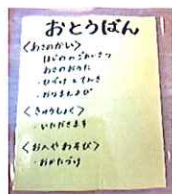 おとうばん
<あさのかい>
はじめのごあいさつ
あさのおうた
・ひづけとてんき
・おなまえよび
<きゅうしょく>
・いただきます
<おへやあそび>
・おかたづけ